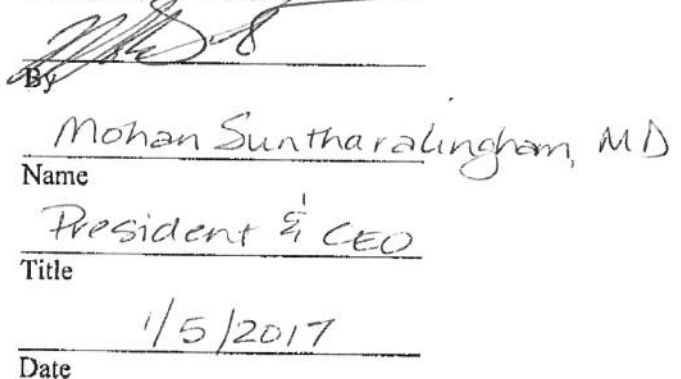 By
Mohan Suntharalingham, MD
Name
President & CEO
Title
1/5/2017
Date